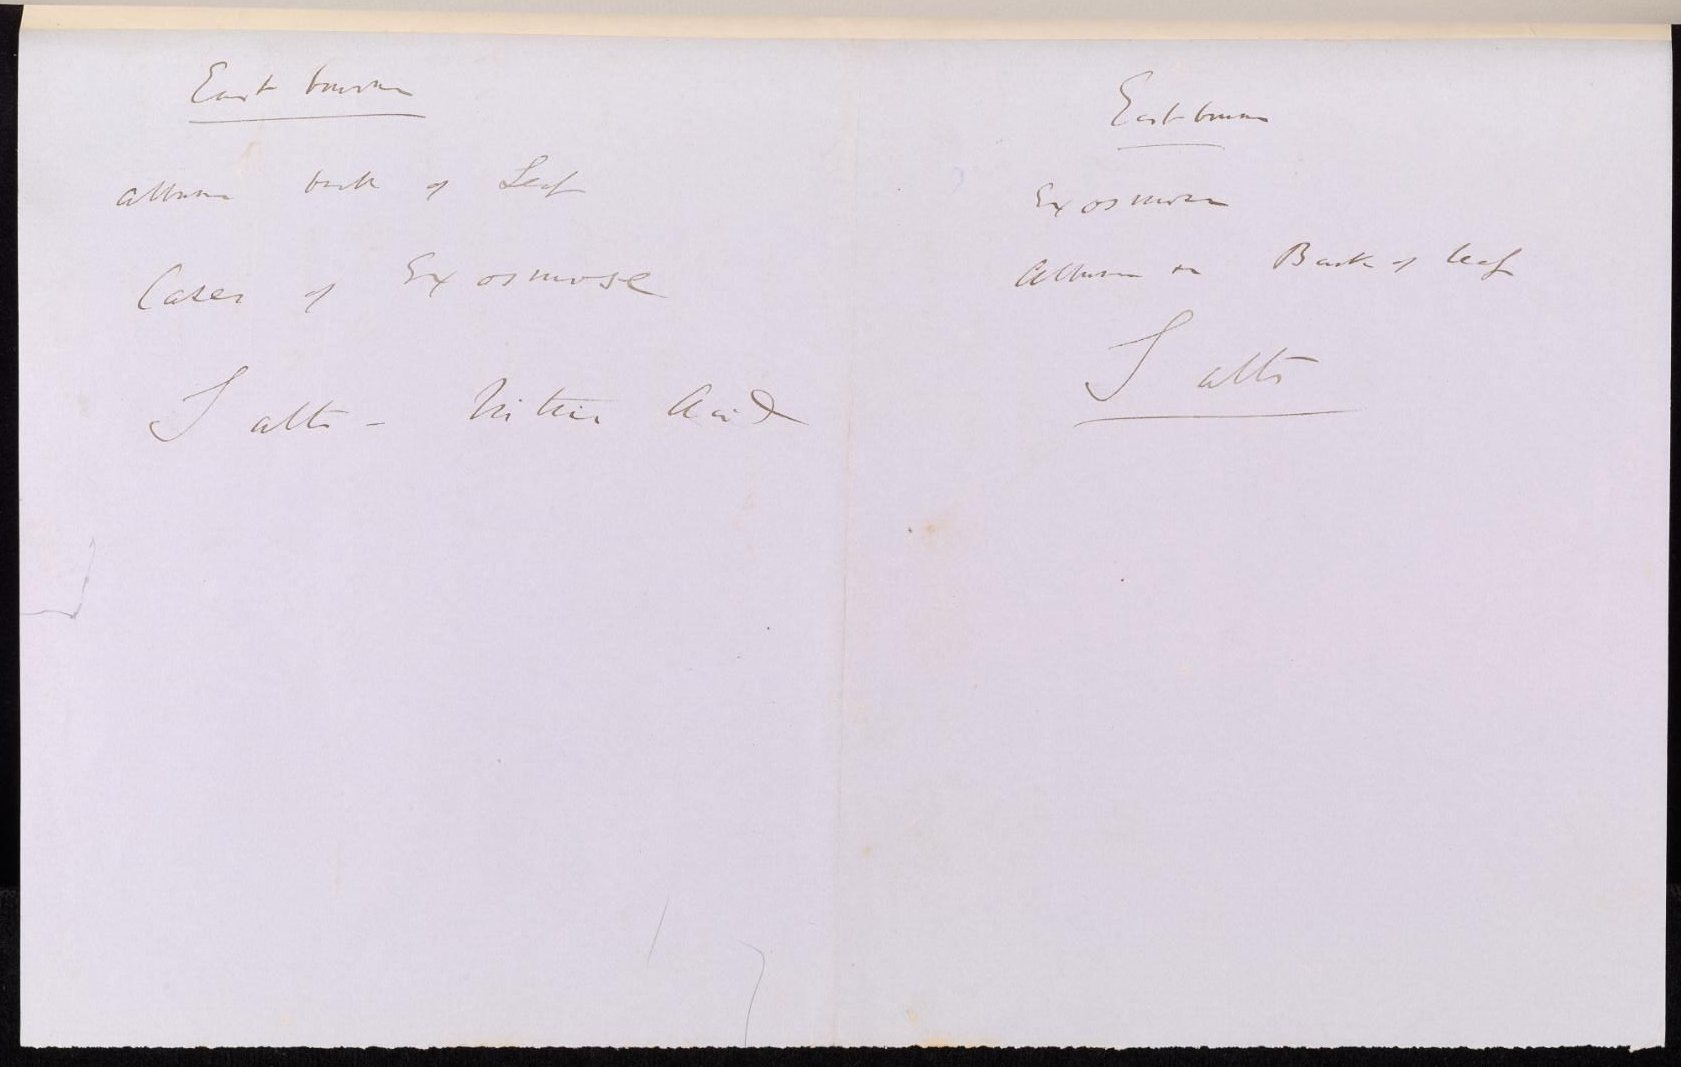 Eastbourne
Album back of Leaf
Cases of Exosmose
Salts - Nitric Acid
Eastbourne
Exosmose
Album on Back of leaf
Salts